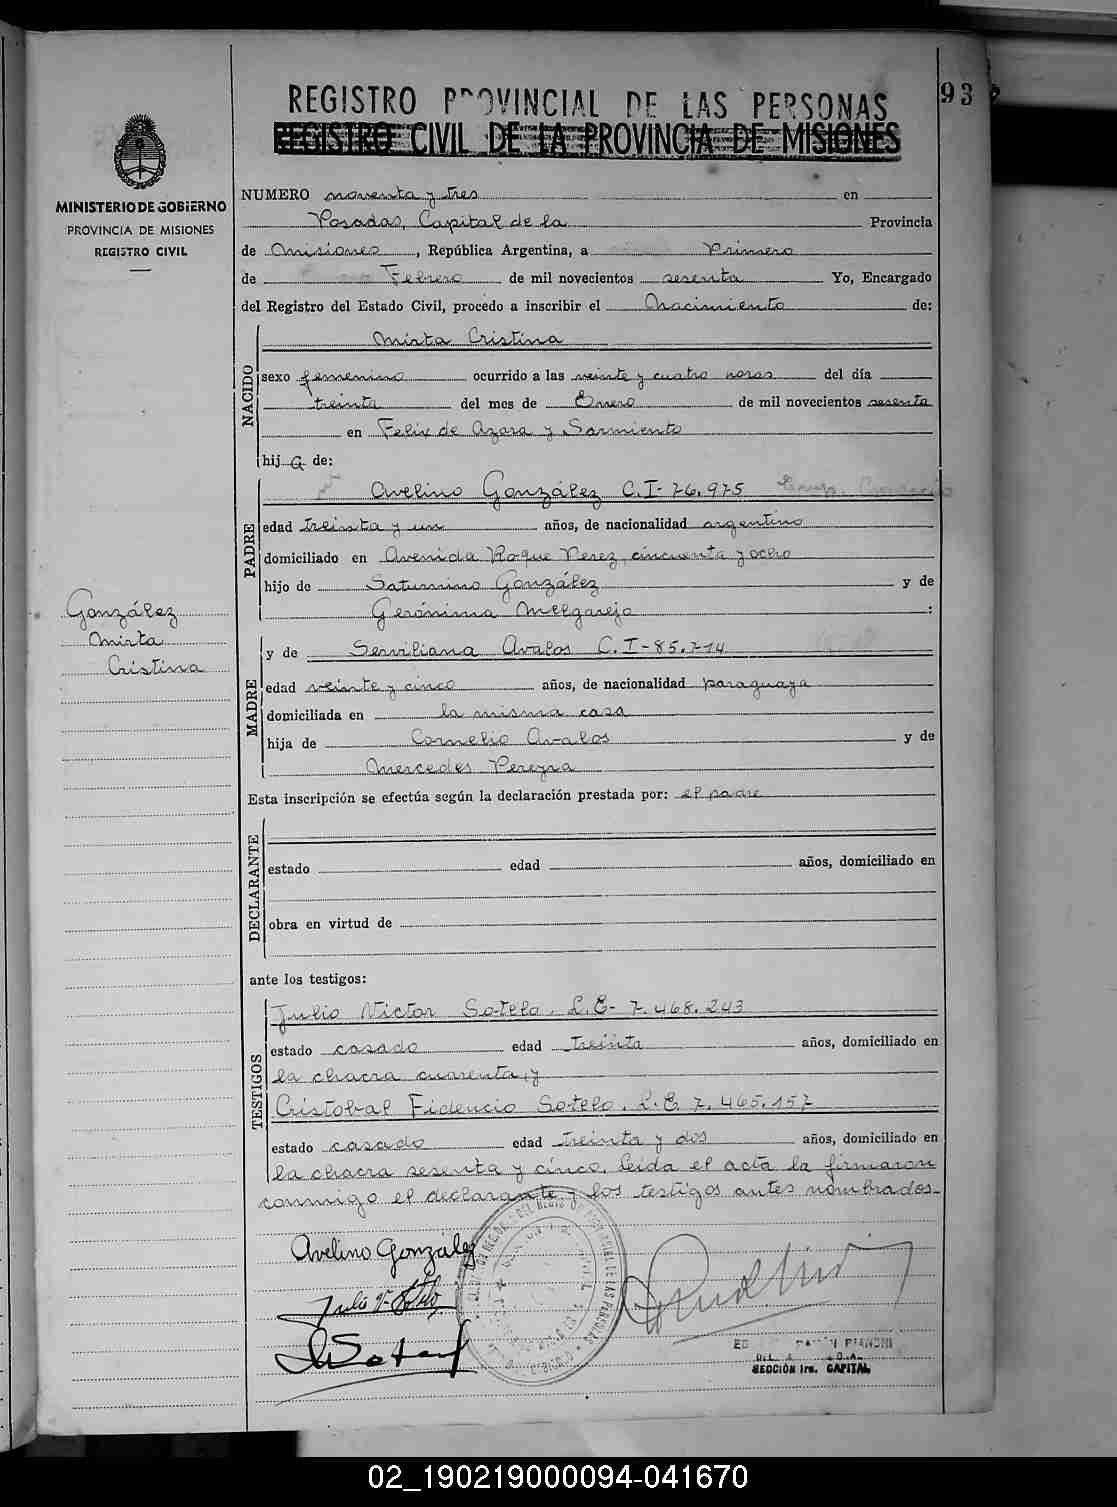 93
REGISTRO PROVINCIAL DE LAS PERSONAS
REGISTRO CIVIL DE LA PROVINCIA DE MISIONES
MINISTERIO DE GOBIERNO
PROVINCIA DE MISIONES
REGISTRO CIVIL
González
Mirta
Cristina
NUMERO noventa y tres en
Posadas, Capital de la Provincia
de Misiones, República Argentina, a Primero
de Febrero de mil novecientos sesenta Yo, Encargado
del Registro del Estado Civil, procedo a inscribir el Nacimiento de:
NACIDO
Mirta Cristina
sexo femenino ocurrido a las veinte y cuatro horas del día
treinta del mes de Enero de mil novecientos sesenta
en Felix de Azara y Sarmiento
hija de:
PADRE
Avelino González C.I-76.975
edad treinta y un años, de nacionalidad argentino
domiciliado en Avenida Roque Perez, cincuenta y ocho
hijo de Saturnino González y de
Gerónima Melgarejo :
MADRE
y de Serviliana Avalos C.I-85.714
edad veinte y cinco años, de nacionalidad paraguaya
domiciliada en la misma casa
hija de Cornelio Avalos y de
Mercedes Pereyra
Esta inscripción se efectúa según la declaración prestada por: el padre
DECLARANTE
estado edad años, domiciliado en
obra en virtud de
ante los testigos:
TESTIGOS
Julio Victor Sotelo. L.E- 7.468.243
estado casado edad treinta años, domiciliado en
la chacra cuarenta, y
Cristobal Fidencio Sotelo. L.E. 7.465.157
estado casado edad treinta y dos años, domiciliado en
la chacra sesenta y cinco. Leida el acta la firmaron
conmigo el declarante y los testigos antes nombrados-
Avelino González
Julio V. Sotelo
SECCIÓN 1ra. CAPITAL
02_190219000094-041670